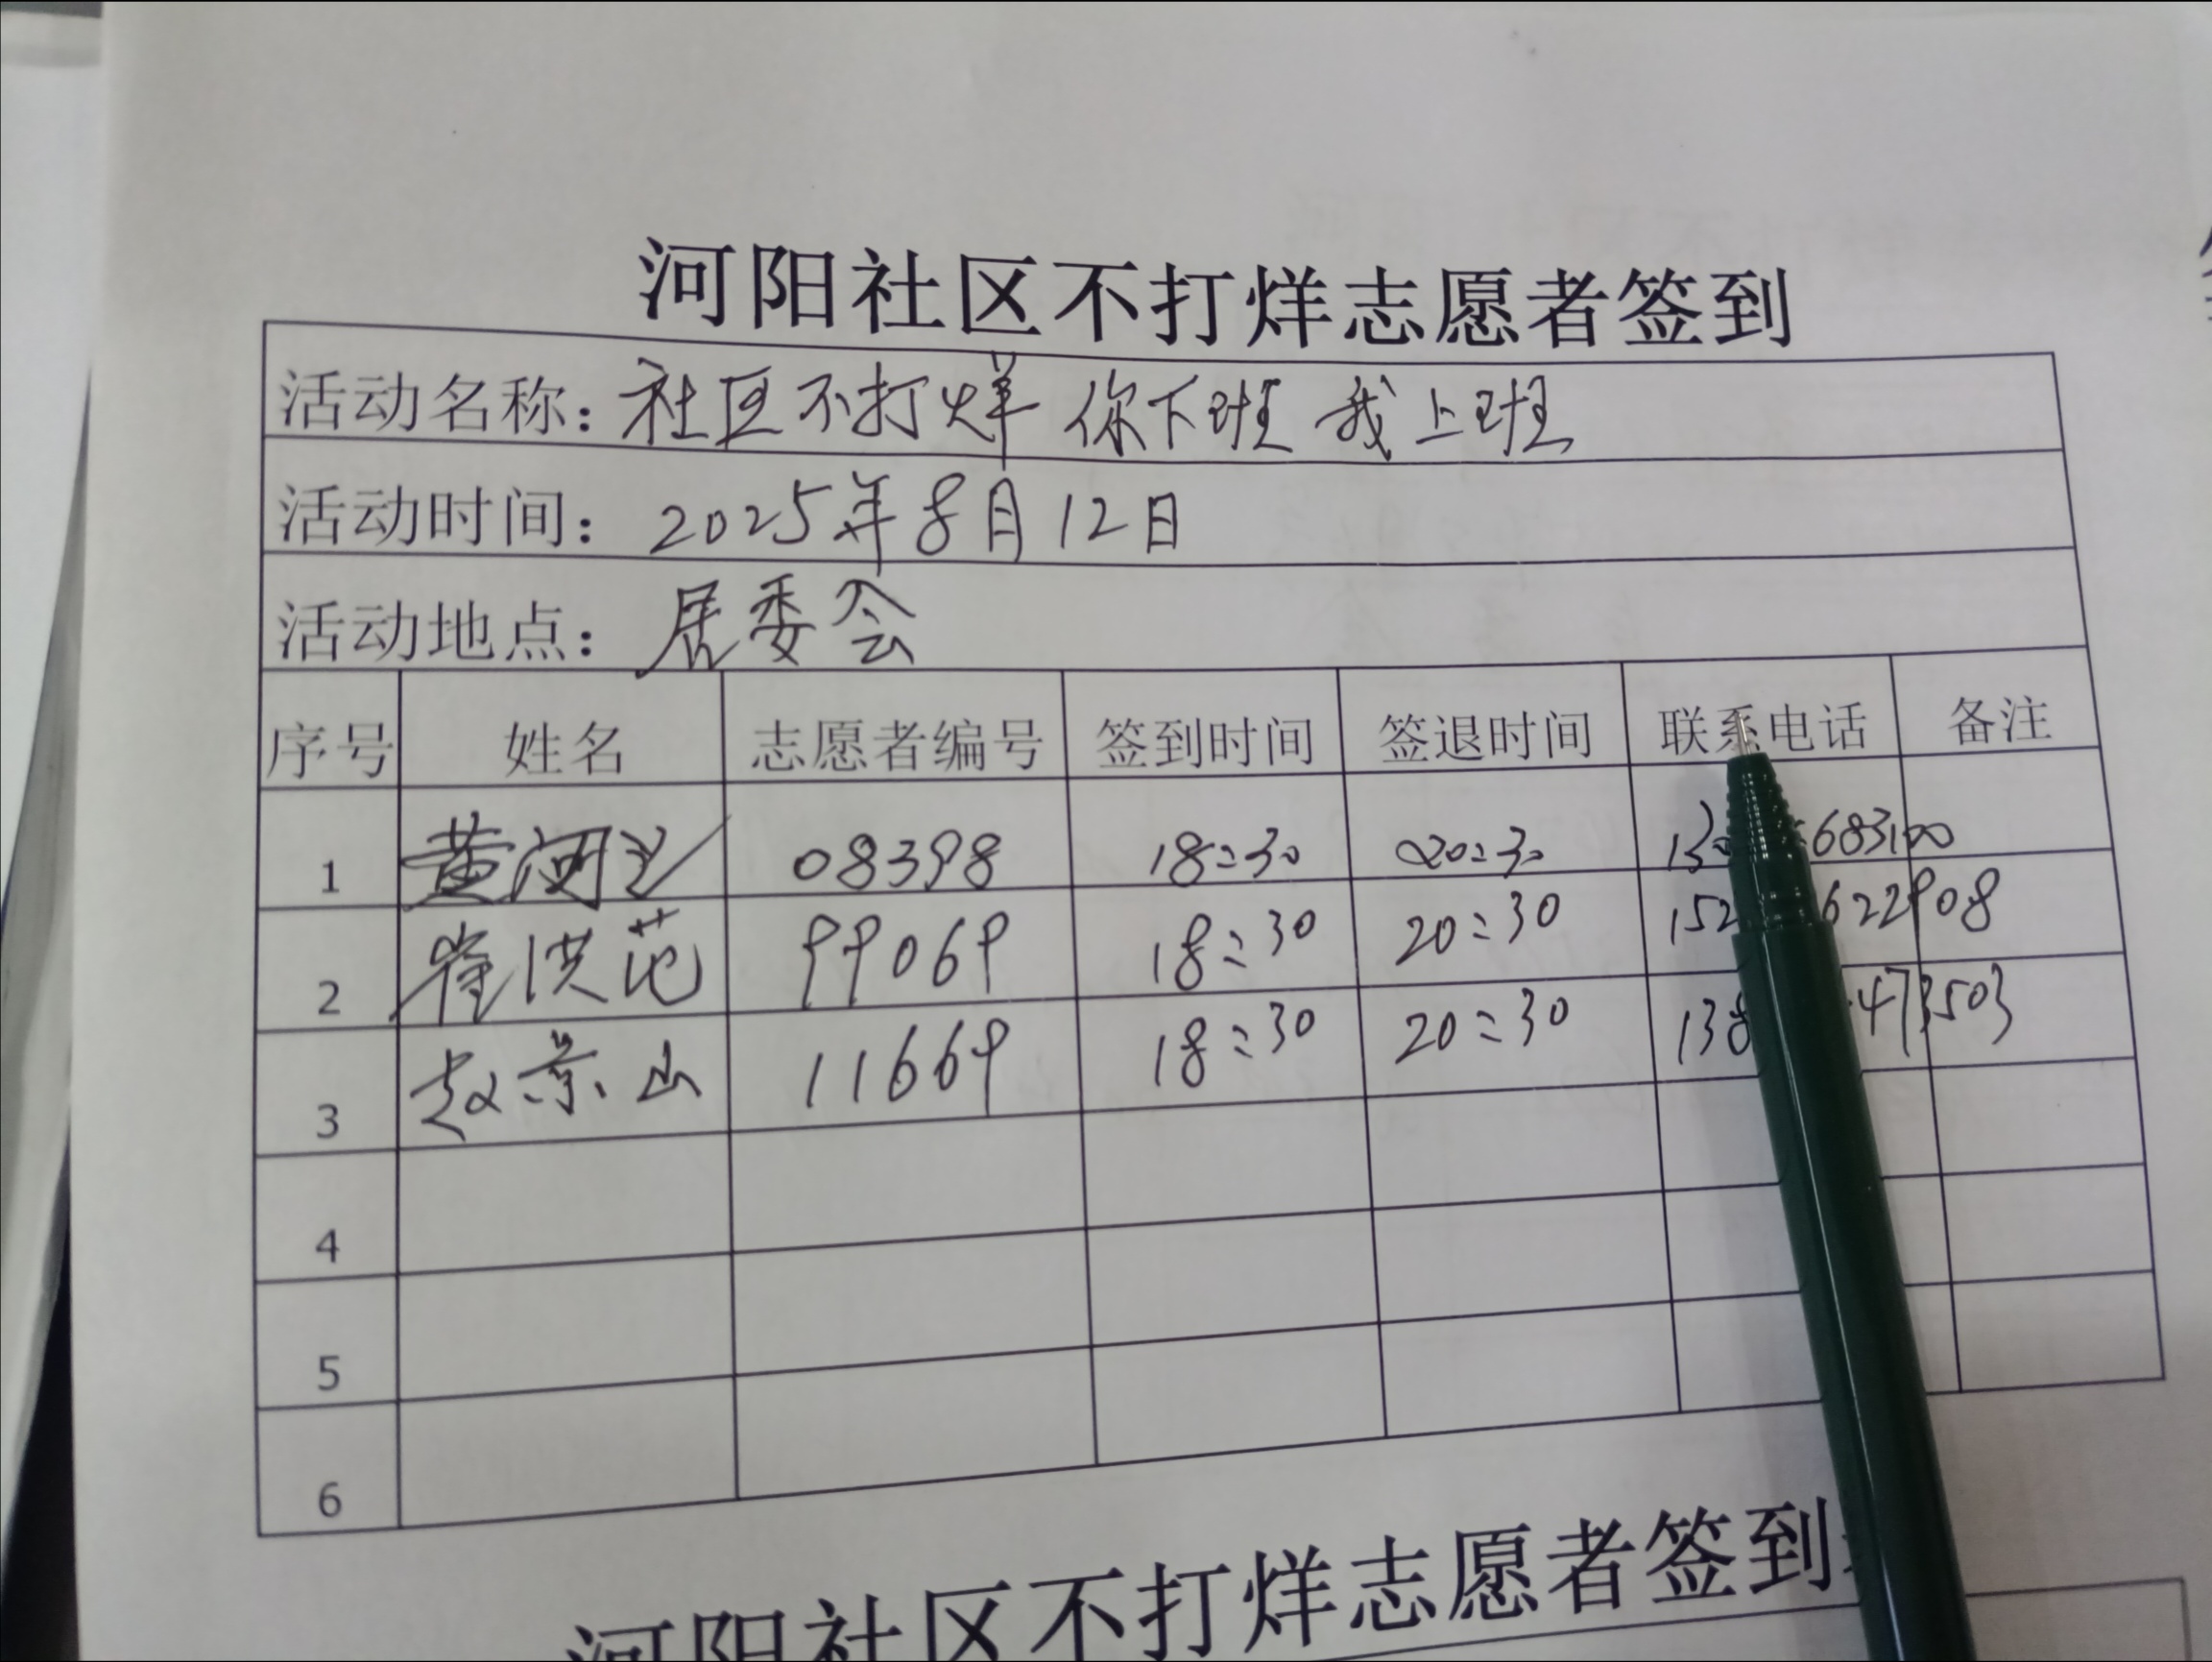 河阳社区不打烊志愿者签到
活动名称：社区不打烊 你下班 我上班
活动时间：2025年8月12日
活动地点：居委会
序号 姓名 志愿者编号 签到时间 签退时间 联系电话 备注
1 黄河 08398 18:30 20:30 683100
2 崔洪范 99069 18:30 20:30 152 622908
3 赵景山 11669 18:30 20:30 138 473503
4
5
6
河阳社区不打烊志愿者签到